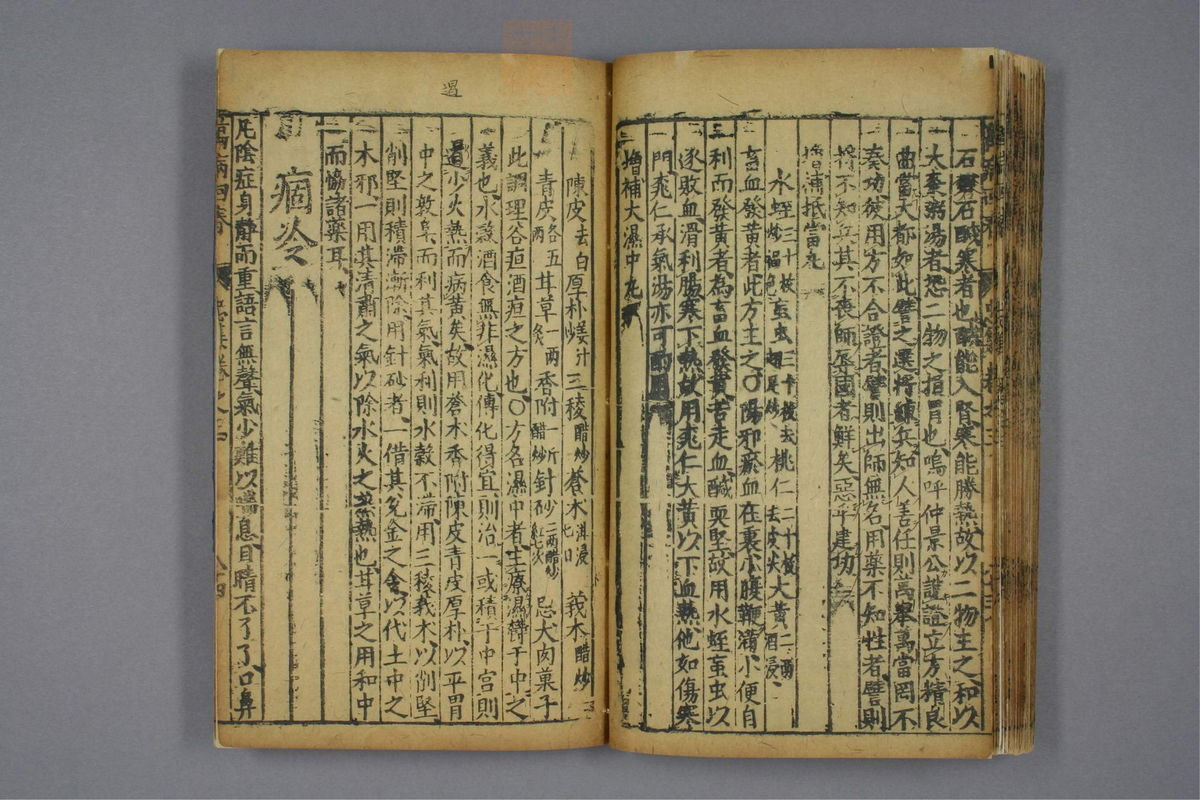 石礬石酸寒者也酸能入腎寒能勝熱故以二物主之和以
大麥粥湯者恐二物之損胃也嗚呼仲景公證證立方精良
曲當大都如此譬之選將練兵知人善任則萬舉萬當罔不
奏功彼用方不合證者譬則出師無名用藥不知性者譬則
將不知兵其不喪師辱國者鮮矣惡乎建功
增補抵當丸
水蛭三十枚炒褐色 䖟虫三十枚去翅足炒 桃仁二十枚去皮尖 大黃二兩酒浸
畜血發黃者此方主之○陽邪瘀血在裏小腹鞕滿小便自
利而發黃者為畜血發黃苦走血鹹耎堅故用水蛭䖟虫以
逐敗血滑利腸寒下熱故用桃仁大黃以下血熱他如傷寒
門桃仁承氣湯亦可酌用
增補大濕中丸
陳皮去白 厚朴姜汁炒 三稜醋炒 蒼木泔浸七日 莪木醋炒
青皮各五兩 甘草一兩炙 香附一斤醋炒 針砂二兩醋炒紅七次 忌犬肉菓子
此調理谷疸酒疸之方也○方名濕中者主療濕鬱于中之
義也水穀酒食無非濕化傳化得宜則治一或積于中宮則
遺少火熱而病黃矣故用蒼木香附陳皮青皮厚朴以平胃
中之敦阜而利其氣氣利則水穀不滯用三稜莪木以削堅
削堅則積滯漸除用針砂者一借其兌金之令以代土中之
木邪一用其清肅之氣以除水火之蒸熱也甘草之用和中
而協諸藥耳
痼冷
凡陰症身靜而重語言無聲氣少難以喘息目睛不了了口鼻